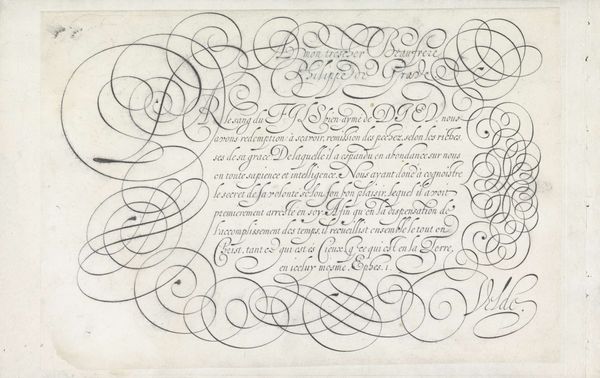 A mon trescher Beaufrere
Philippe de
le sang du FILS bien-aymé de DIEU, nous
avons redemption: à sçavoir, remission des pechez, selon les riches-
ses de sa grace De laquelle il a espandu en abondance sur nous
en toute sapience et intelligence. Nous ayant donné à cognoistre
le secret de sa volonté selon son bon plaisir, lequel il avoit
premierement arresté en soy. Afin qu'en la dispensation de
l'accomplissement des temps, il recueillist ensemble le tout en
Christ, tant ce qui est es Cieux, q̃ ce qui est en la Terre,
en iceluy mesme. Ephes. 1.
Velde.